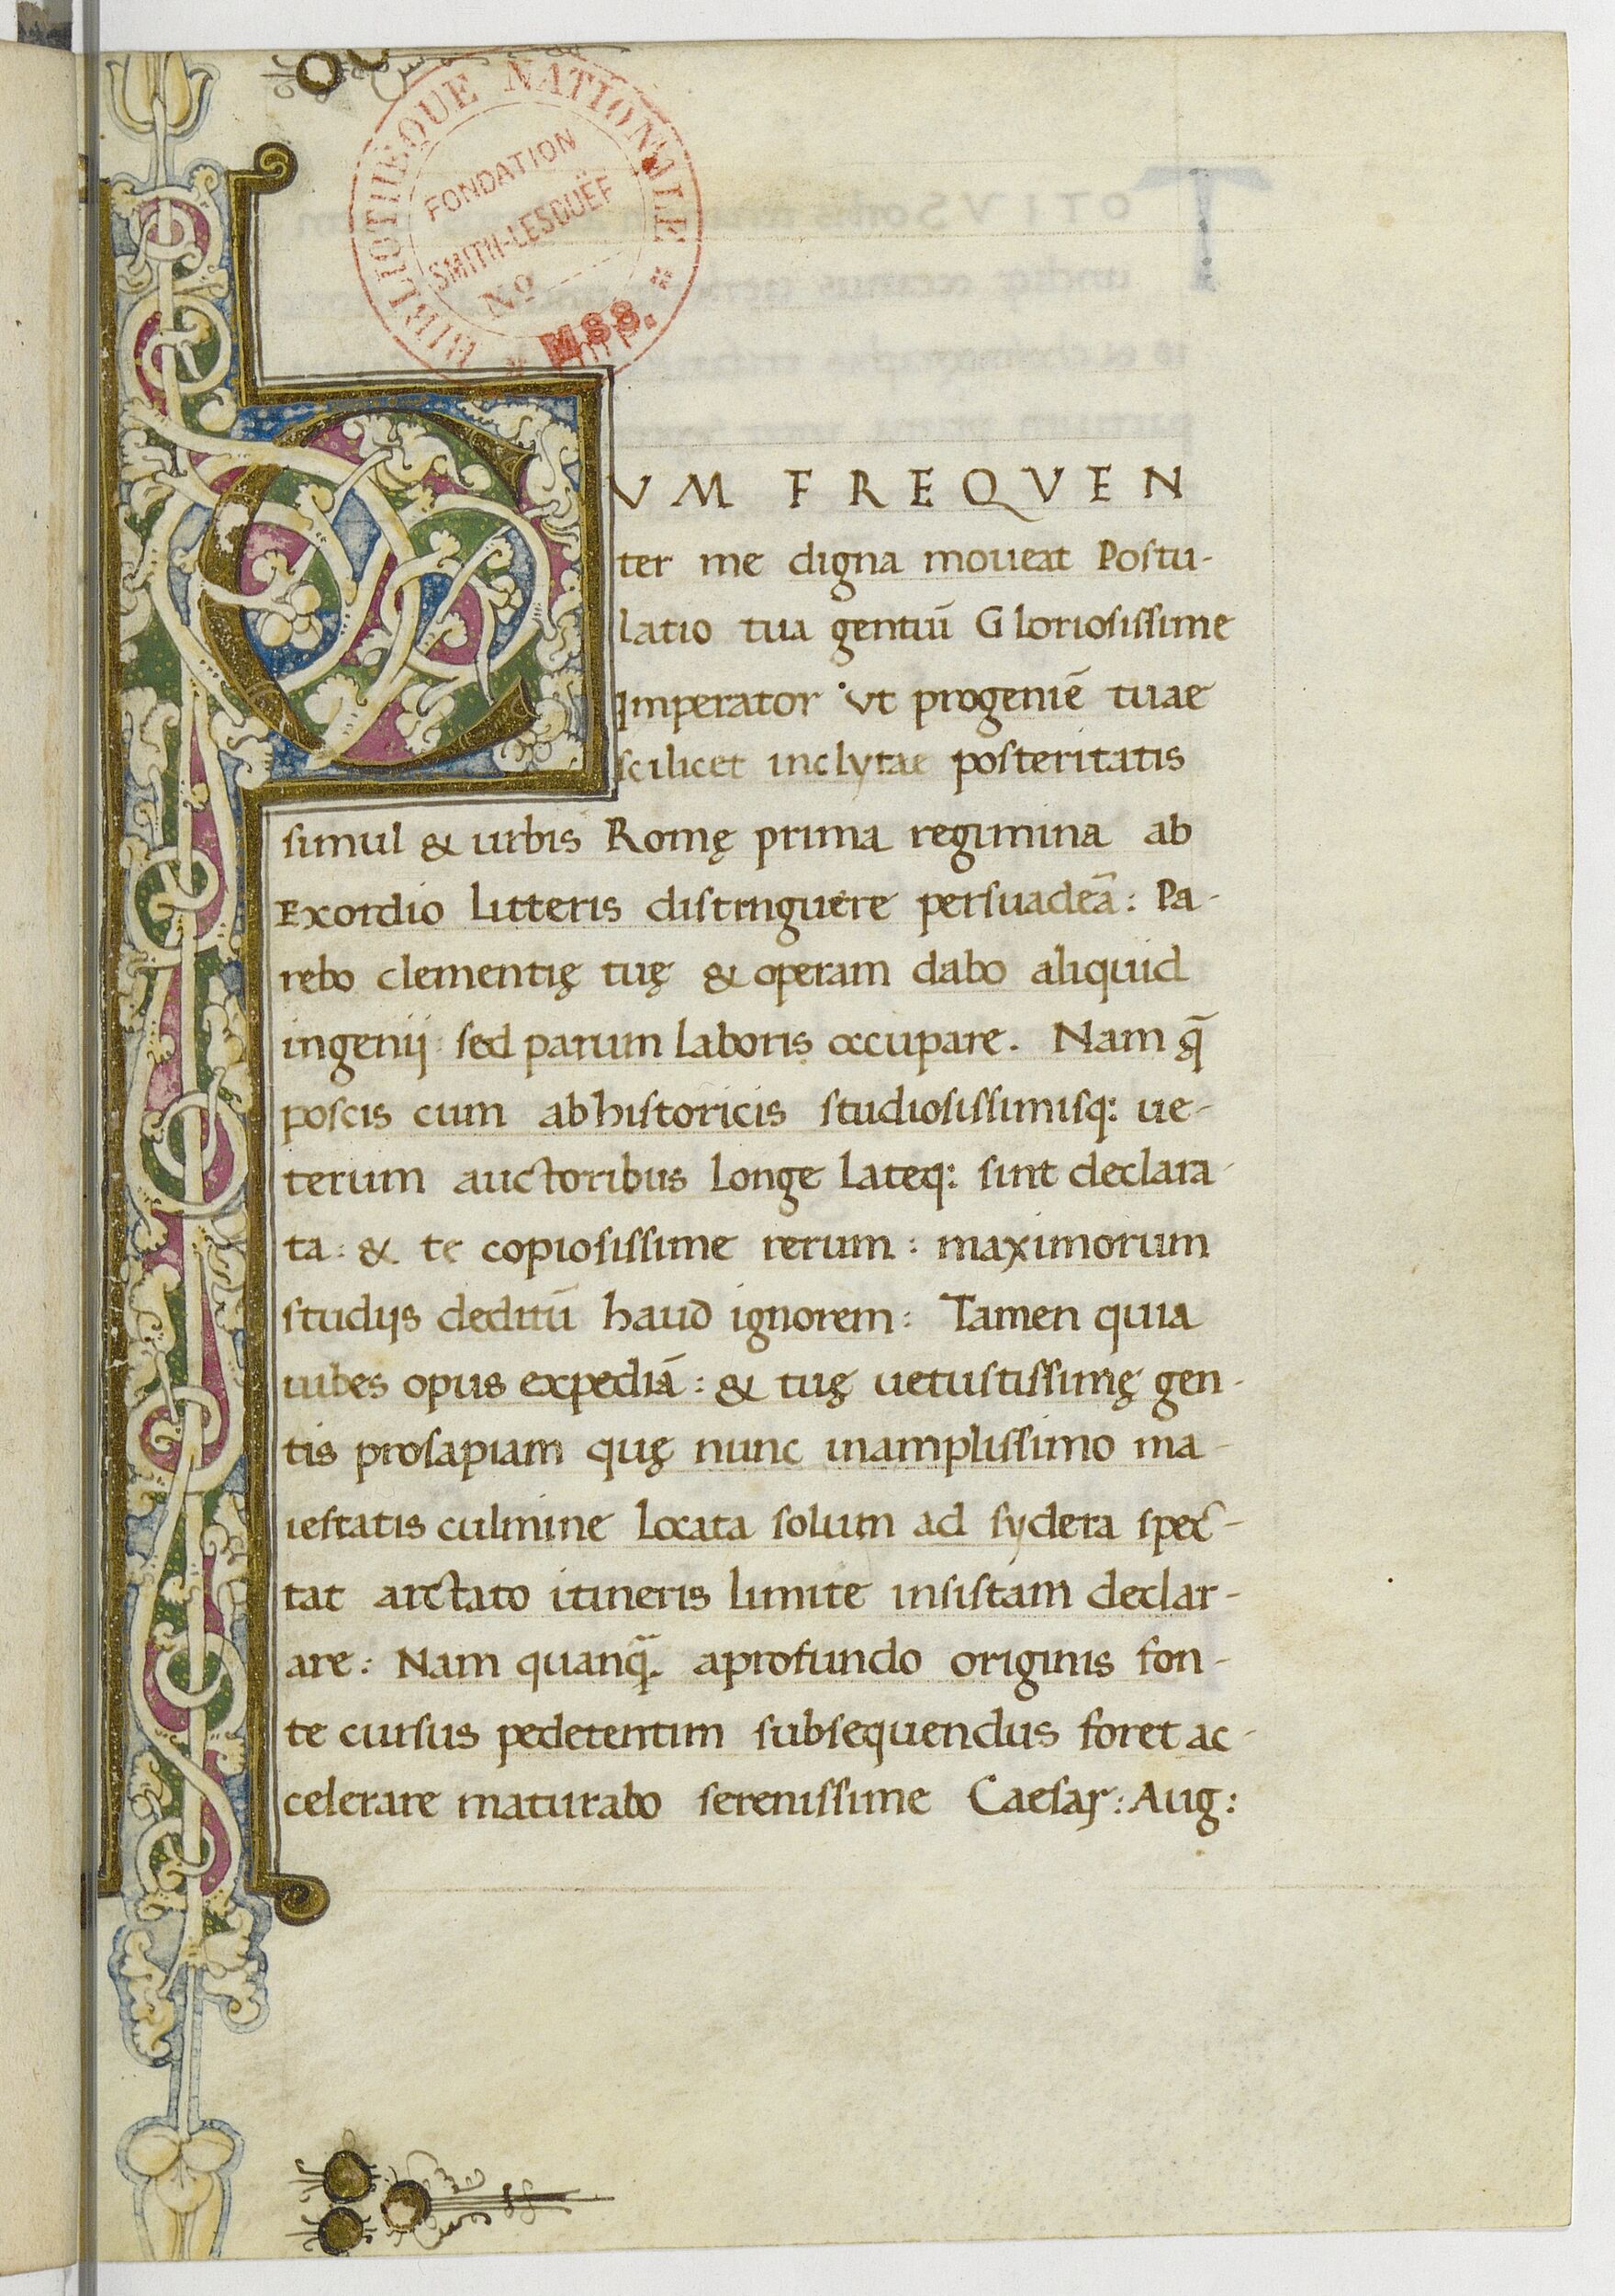 BIBLIOTHEQUE NATIONALE
FONDATION
SMITH-LESOUËF
No
MSS.
CVM FREQVEN
ter me digna moueat Postu-
latio tua gentiū Gloriosissime
Imperator ut progeniē tuae
scilicet inclytae posteritatis
simul & urbis Romę prima regimina ab
Exordio litteris distinguere persuadeā: Pa-
rebo clementię tuę & operam dabo aliquid
ingenij sed parum laboris occupare. Nam q̄
poscis cum ab historicis studiosissimisq: ue-
terum auctoribus longe lateq: sint declara-
ta: & te copiosissime rerum: maximorum
studijs deditū haud ignorem: Tamen quia
iubes opus expediā: & tuę uetustissimę gen-
tis prosapiam quę nunc in amplissimo ma-
iestatis culmine locata solum ad sydera spec-
tat arctato itineris limite insistam declar-
are: Nam quanq̄. a profundo originis fon-
te cursus pedetentim subsequendus foret ac-
celerare maturabo serenissime Caesar: Aug: